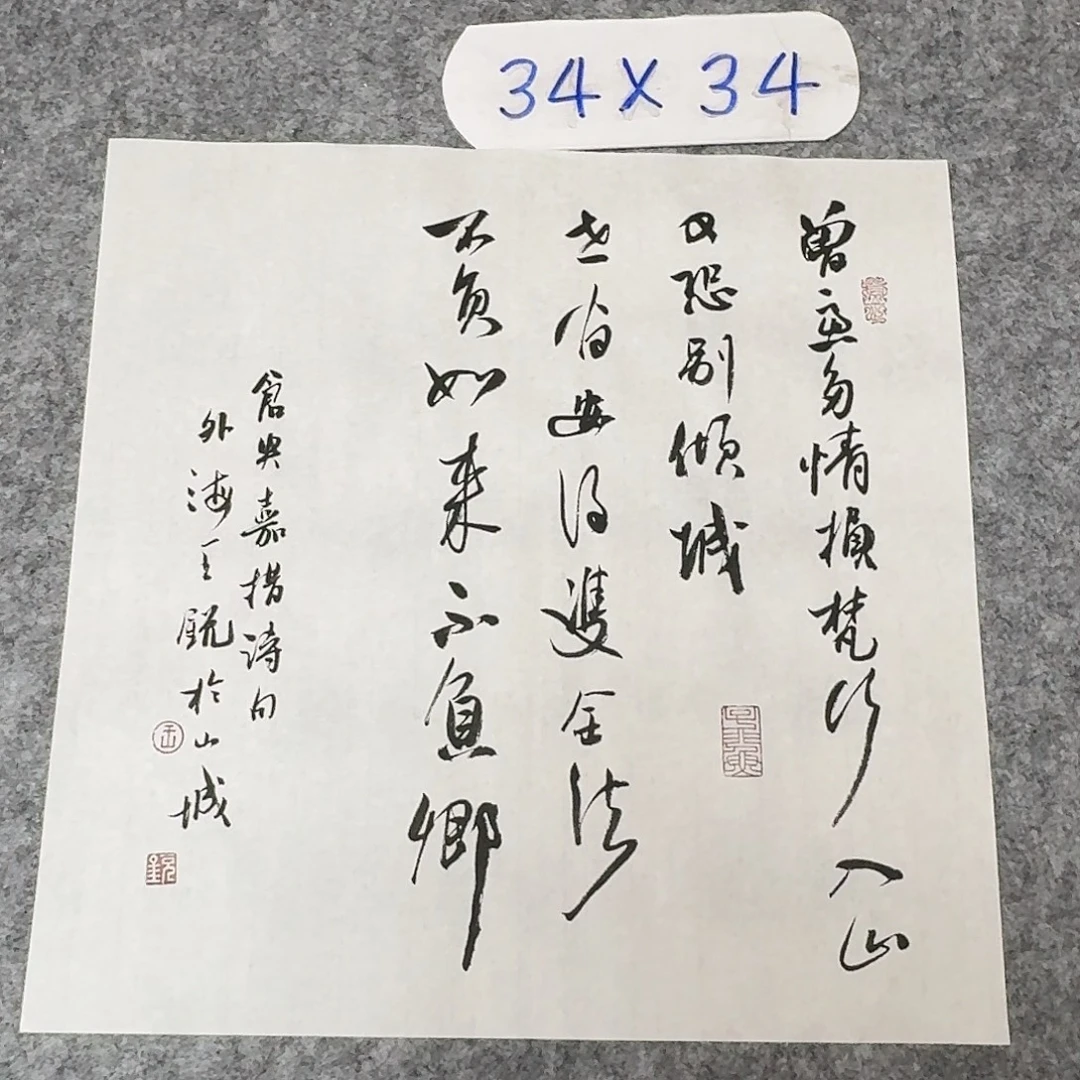 34 X 34
曾慮多情損梵行入山
又恐別傾城
世間安得雙全法
不負如來不負卿
倉央嘉措詩句
外海王鋭於山城